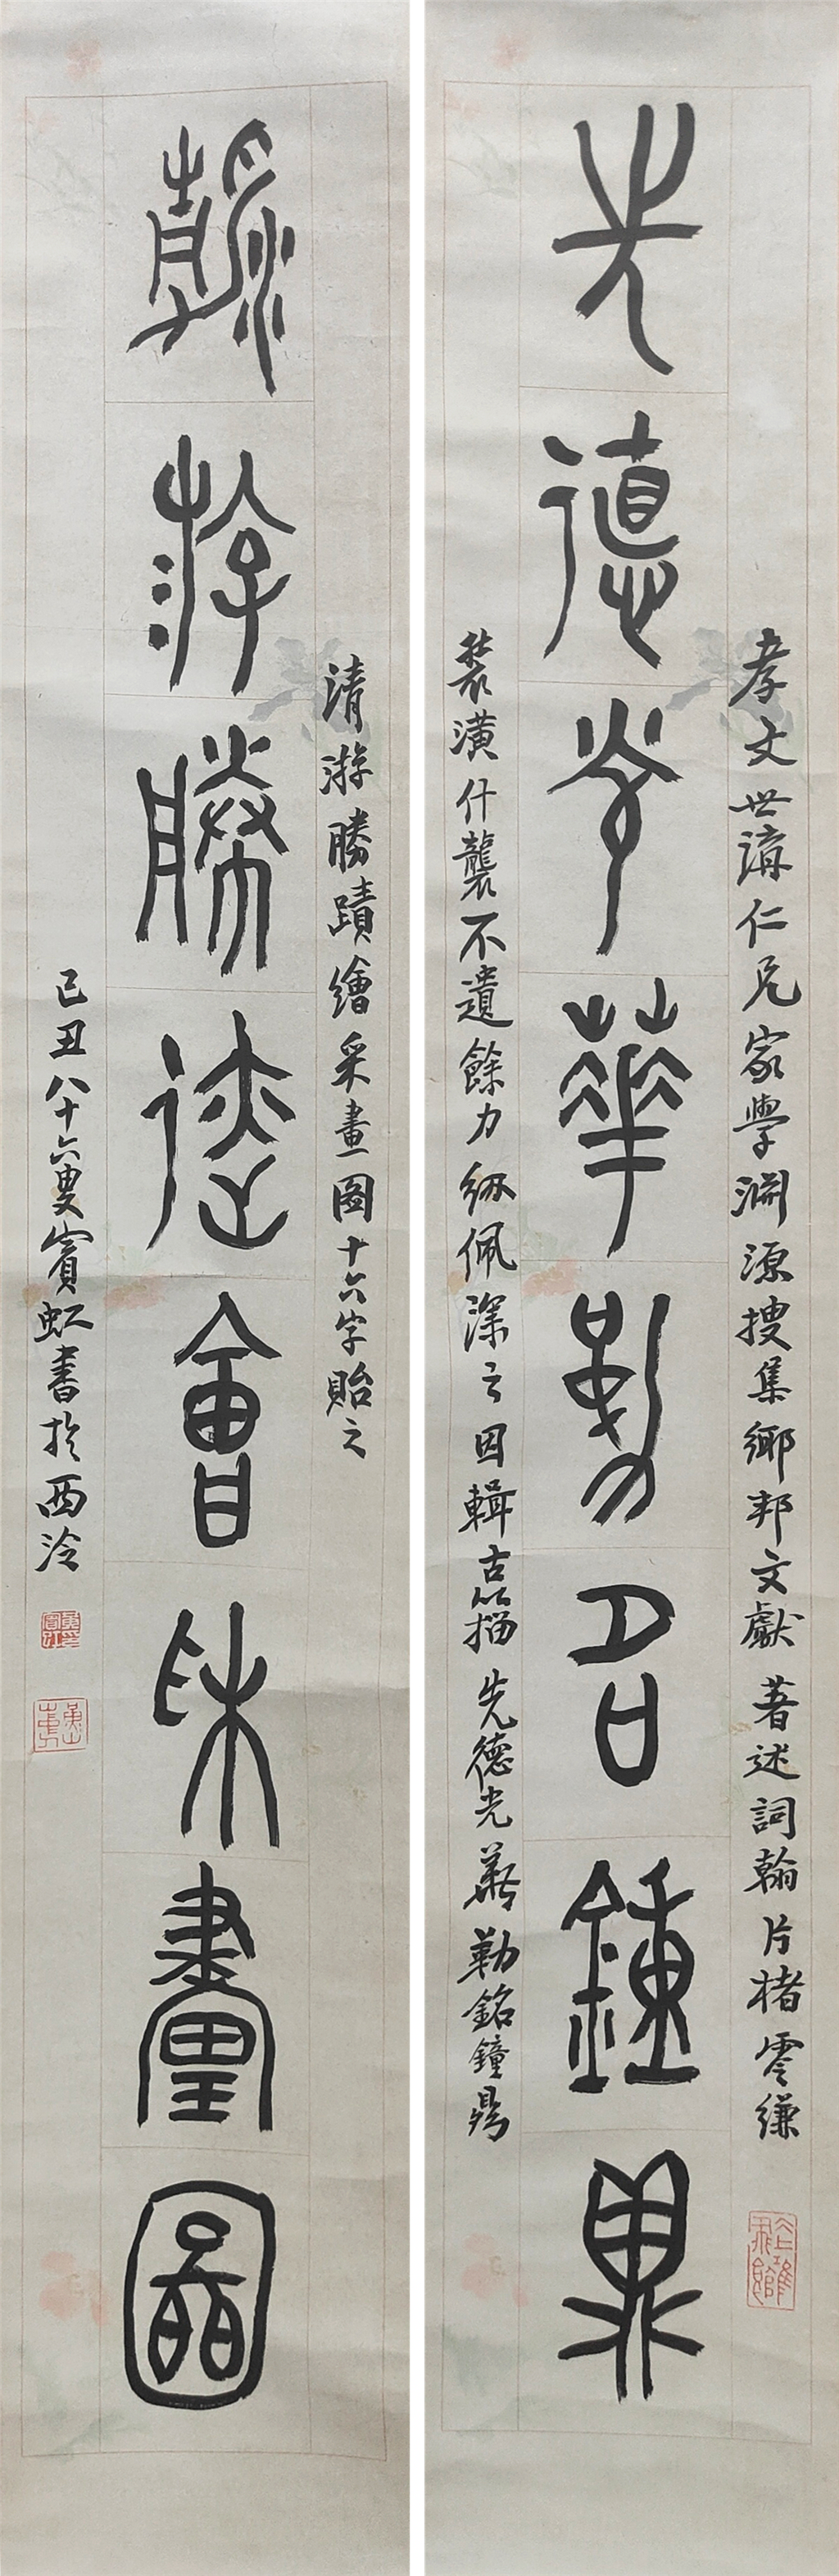 先德光華勒名鐘鼎
孝文世講仁兄家學淵源搜集鄉邦文獻著述詞翰片楮零縑
裝潢什襲不遺餘力紉佩深之因輯古籀先德光華勒銘鐘鼎
靜游勝迹會采畫圖
清游勝蹟繪采畫圖十六字貽之
己丑八十六叟賓虹書於西泠
黃賓虹
黃山予向